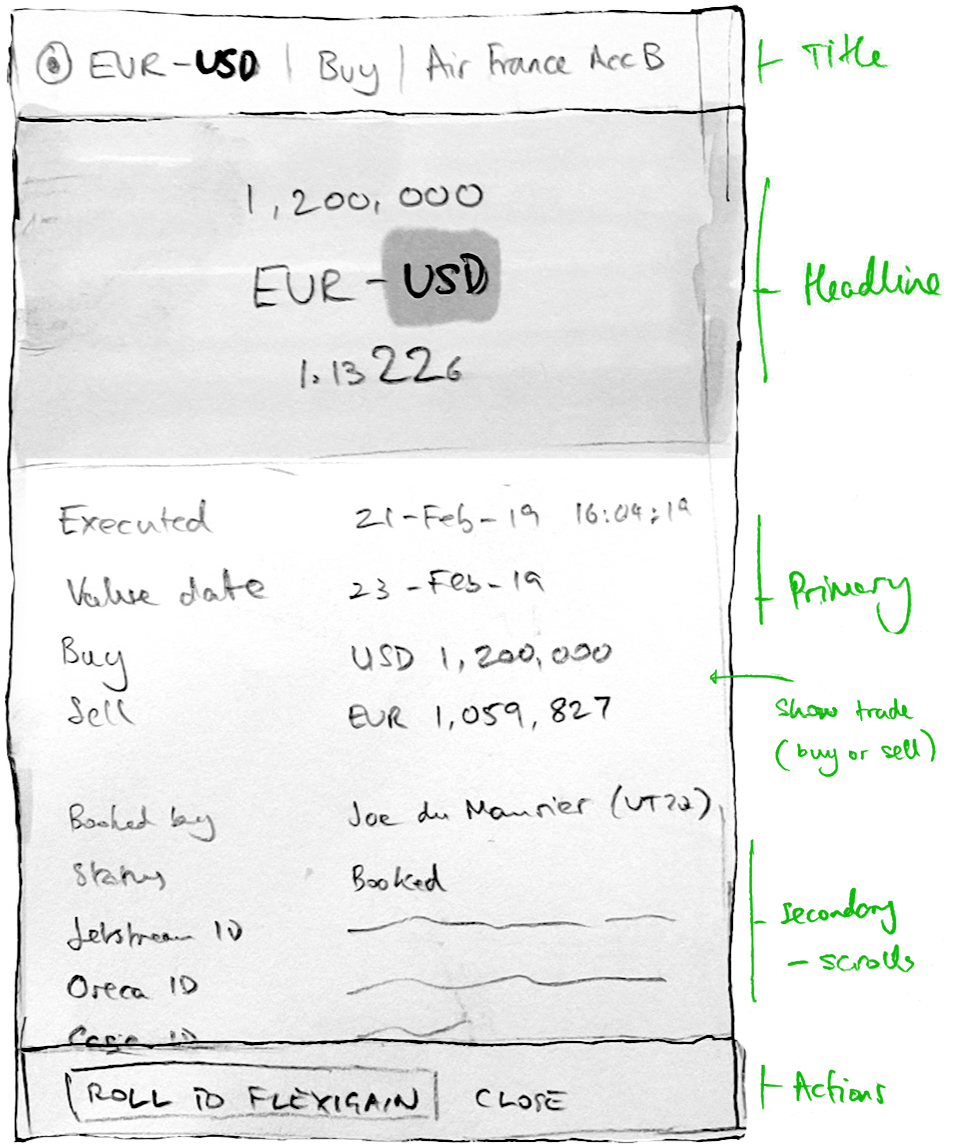 EUR-USD | Buy | Air France Acc B
Title
1,200,000
EUR-USD
1.13226
Headline
Executed 21-Feb-19 16:04:19
Value date 23-Feb-19
Primary
Buy USD 1,200,000
Sell EUR 1,059,827
Show trade
(buy or sell)
Booked by Joe du Maurier
Status Booked
Jetstream ID
Secondary
- scrolls
Oreca ID
ID
ROLL TO FLEXIGAIN CLOSE
Actions